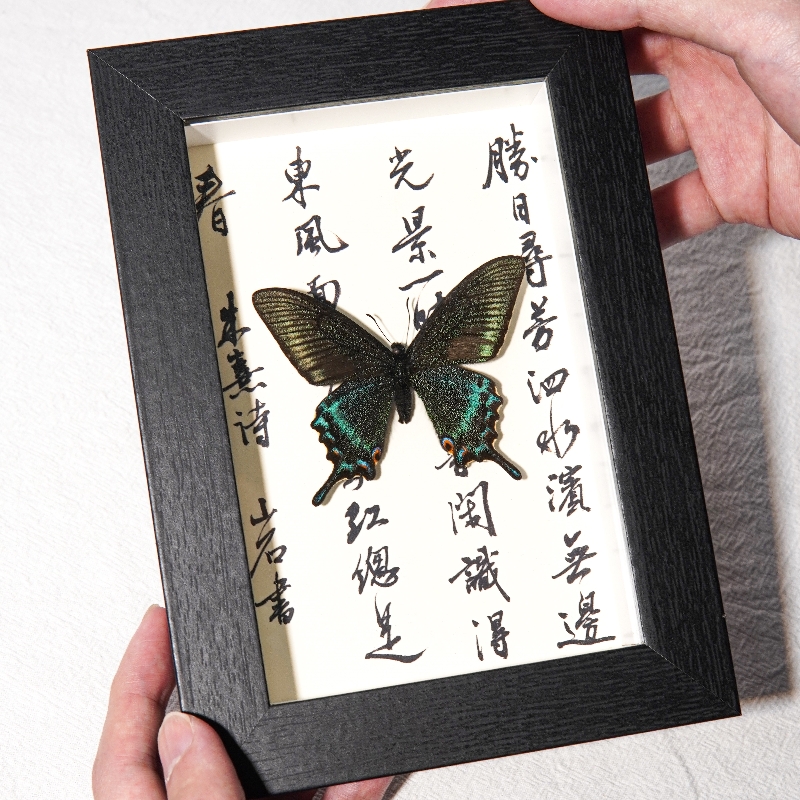 勝日尋芳泗水濱無邊
光景一時閑識得
東風面紅總是
春 朱熹詩 岩書